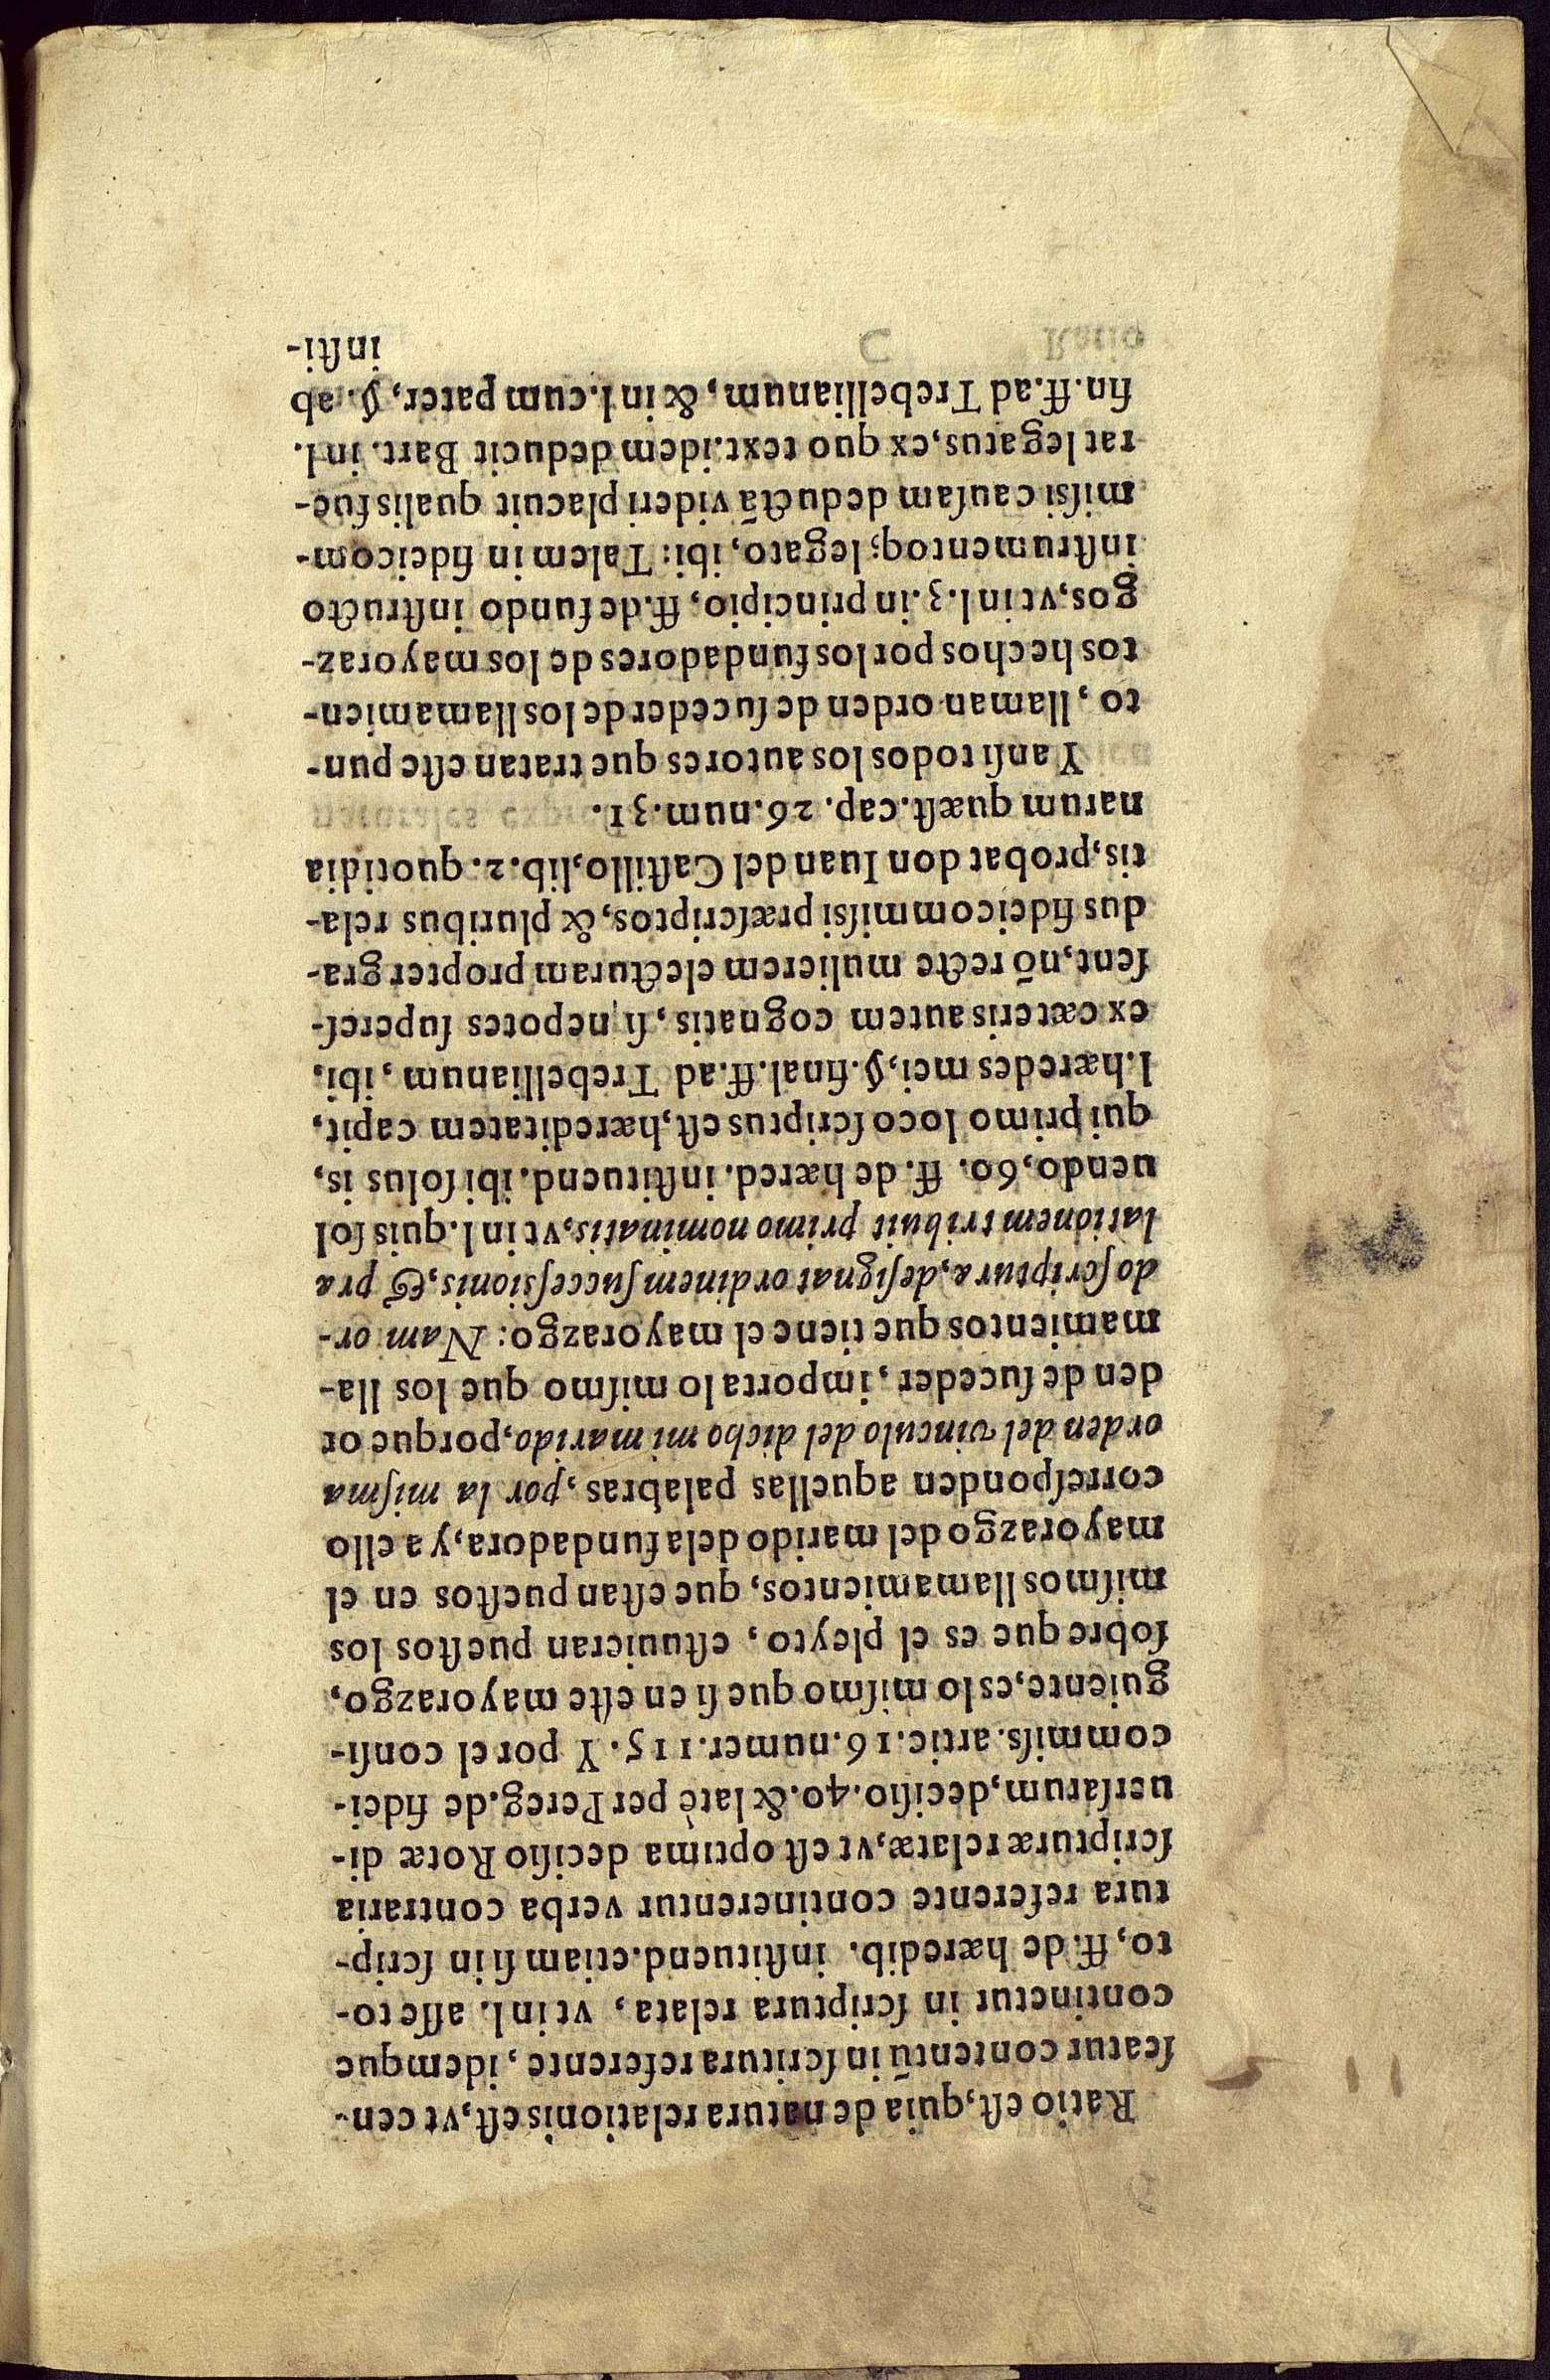 Ratio eſt, quia de natura relationis eſt, vt cen-
ſeatur contentū in ſcritura referente, idemque
continetur in ſcriptura relata, vt in l. aſſe to-
to, ff. de hæredib. inſtituend. etiam ſi in ſcrip-
tura referente continerentur verba contraria
ſcripturæ relatæ, vt eſt optima deciſio Rotæ di-
uerſarum, deciſio. 40. & latè per Pereg. de fidei-
commiſs. artic. 16. numer. 115. Y por el conſi-
guiente, es lo miſmo que ſi en eſte mayorazgo,
ſobre que es el pleyto, eſtuuieran pueſtos los
miſmos llamamientos, que eſtan pueſtos en el
mayorazgo del marido de la fundadora, y a ello
correſponden aquellas palabras, por la miſma
orden del vinculo del dicho mi marido, porque or
den de ſuceder, importa lo miſmo que los lla-
mamientos que tiene el mayorazgo: Nam or-
do ſcriptura, deſignat ordinem ſucceſsionis, & præ
lationem tribuit primo nominatis, vt in l. quis ſol
uendo, 60. ff. de hæred. inſtituend. ibi ſolus is,
qui primo loco ſcriptus eſt, hæreditatem capit,
l. hæredes mei, §. final. ff. ad Trebellianum, ibi,
ex cæteris autem cognatis, ſi nepotes ſupereſ-
ſent, nō recte mulierem electuram propter gra-
dus fideicommiſsi præſcriptos, & pluribus rela-
tis, probat don Iuan del Caſtillo, lib. 2. quotidia
narum quæſt. cap. 26. num. 31.
Y anſi todos los autores que tratan eſte pun-
to, llaman orden de ſuceder de los llamamien-
tos hechos por los fundadores de los mayoraz-
gos, vt in l. 3. in principio, ff. de fundo inſtructo
inſtrumentoq; legato, ibi: Talem in fideicom-
miſsi cauſam deductã videri placuit qualis fue-
rat legatus, ex quo text. idem deducit Bart. in l.
fin. ff. ad Trebellianum, & in l. cum pater, §. ab
inſti-